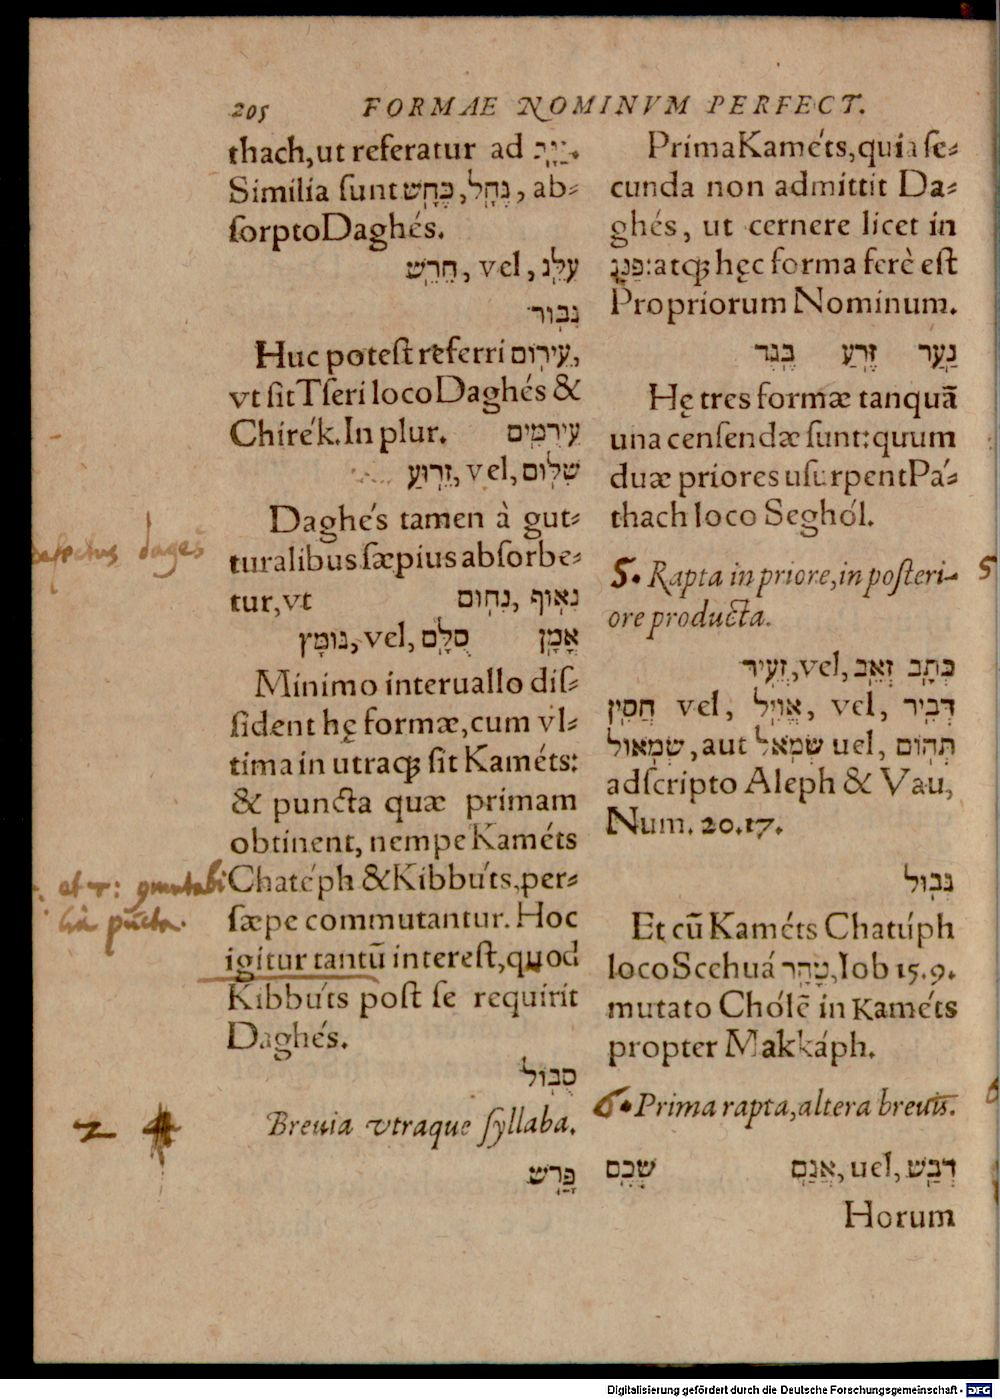 205 FORMAE NOMINVM PERFECT.
thach, ut referatur ad
Similia ſunt כֶּחָשׁ, נֶחָל, ab-
ſorpto Daghés.
עִלֵּג, vel, חֵרֵשׁ
גִּבּוֹר
Huc poteſt referri עֵירוֹם,
vt ſit Tſeri loco Daghés &
Chirék. In plur. עֵירֻמִּים
שִׁלּוֹם, vel, זֵרוּעַ
Daghés tamen à gut-
turalibus ſæpius abſorbe-
tur, vt נִאוּף, נִחוּם
אָמָּן סֻלָּם, vel, גּוּמָּץ
Minimo interuallo dif-
ſident hę formæ, cum vl-
tima in utraqꝫ ſit Kaméts:
& puncta quæ primam
obtinent, nempe Kaméts
Chatéph & Kibbúts, per-
ſæpe commutantur. Hoc
igitur tantũ intereſt, quod
Kibbúts poſt ſe requirit
Daghés.
סֻבּוֹל
Breuia vtraque ſyllaba.
פָּרָשׁ
Prima Kaméts, quia ſe-
cunda non admittit Da-
ghés, ut cernere licet in
פַּנַּג: atqꝫ hęc forma ferè eſt
Propriorum Nominum.
נַעַר זֶרַע בֶּגֶד
Hę tres formæ tanquã
una cenſendæ ſunt: quum
duæ priores uſurpent Pá-
thach loco Seghól.
5. Rapta in priore, in poſteri- 5
ore producta.
כְּתָב זְאֵב, vel, זְעֵיר
דְּבִיר, vel, אֱוִיל, vel, חֲסִין
תְּהוֹם, uel שְׂמֹאל aut, שְׂמֹאול
adſcripto Aleph & Vau,
Num. 20.17.
גְּבוּל
Et cũ Kaméts Chatúph
loco Scehuá טָהָר, Iob 15.9.
mutato Chólẽ in Kaméts
propter Makkáph.
6. Prima rapta, altera breuis. 6
דְּבַשׁ, uel, אֲגַם שְׁכֶם
Horum
dages
puncta.
2
Digitalisierung gefördert durch die Deutsche Forschungsgemeinschaft - DFG